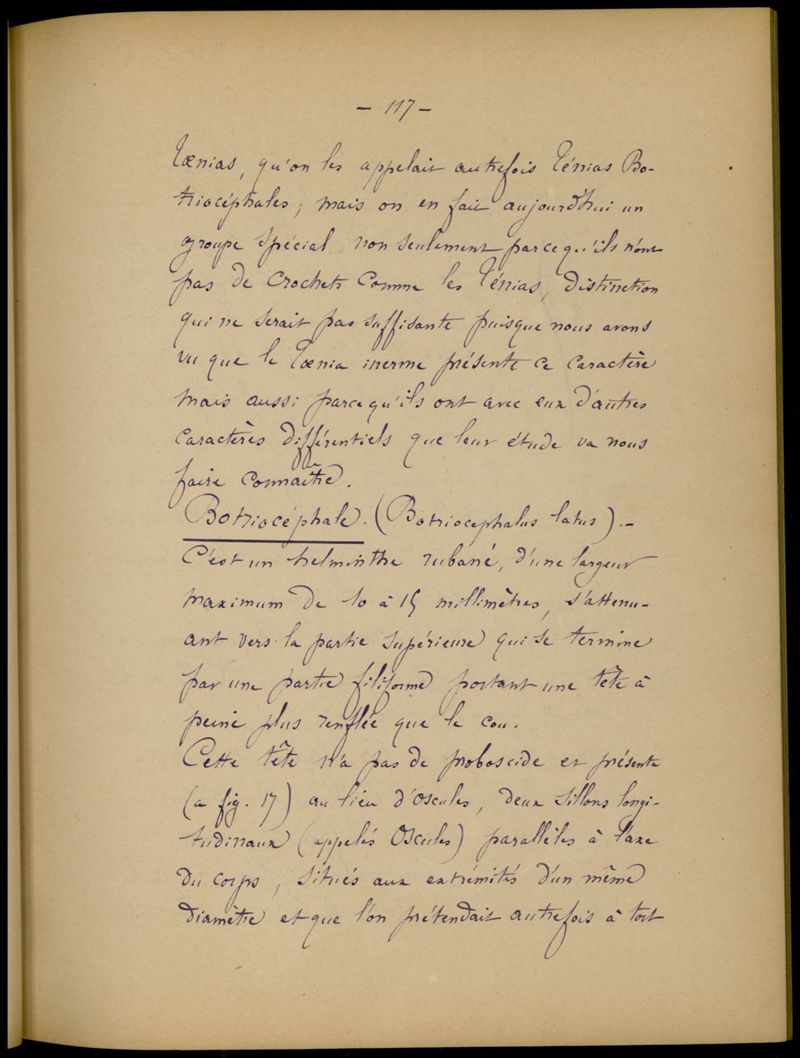 — 117 —
Tænias, qu'on les appelait autrefois Ténias Bo-
triocéphales; mais on en fait aujourd'hui un
groupe spécial non seulement parcequ'ils n'ont
pas de crochets comme les Ténias, distinction
qui ne serait pas suffisante puisque nous avons
vu que le Tœnia inerme présente ce caractère
mais aussi parcequ'ils ont avec eux d'autres
caractères différentiels que leur étude va nous
faire connaître.
Botriocéphale. (Botriocephalus latus). —
C'est un helminthe rubané, d'une largeur
maximum de 10 à 15 millimètres, s'attenu-
ant vers la partie supérieure qui se termine
par une partie filiforme portant une tête à
peine plus renflée que le cou.
Cette tête n'a pas de proboscide et présente
(a fig. 17) au lieu d'oscules, deux sillons longi-
tudinaux (appelés Oscules) parallèles à l'axe
du corps, situés aux extrémités d'un même
diamètre et que l'on prétendait autrefois à tort